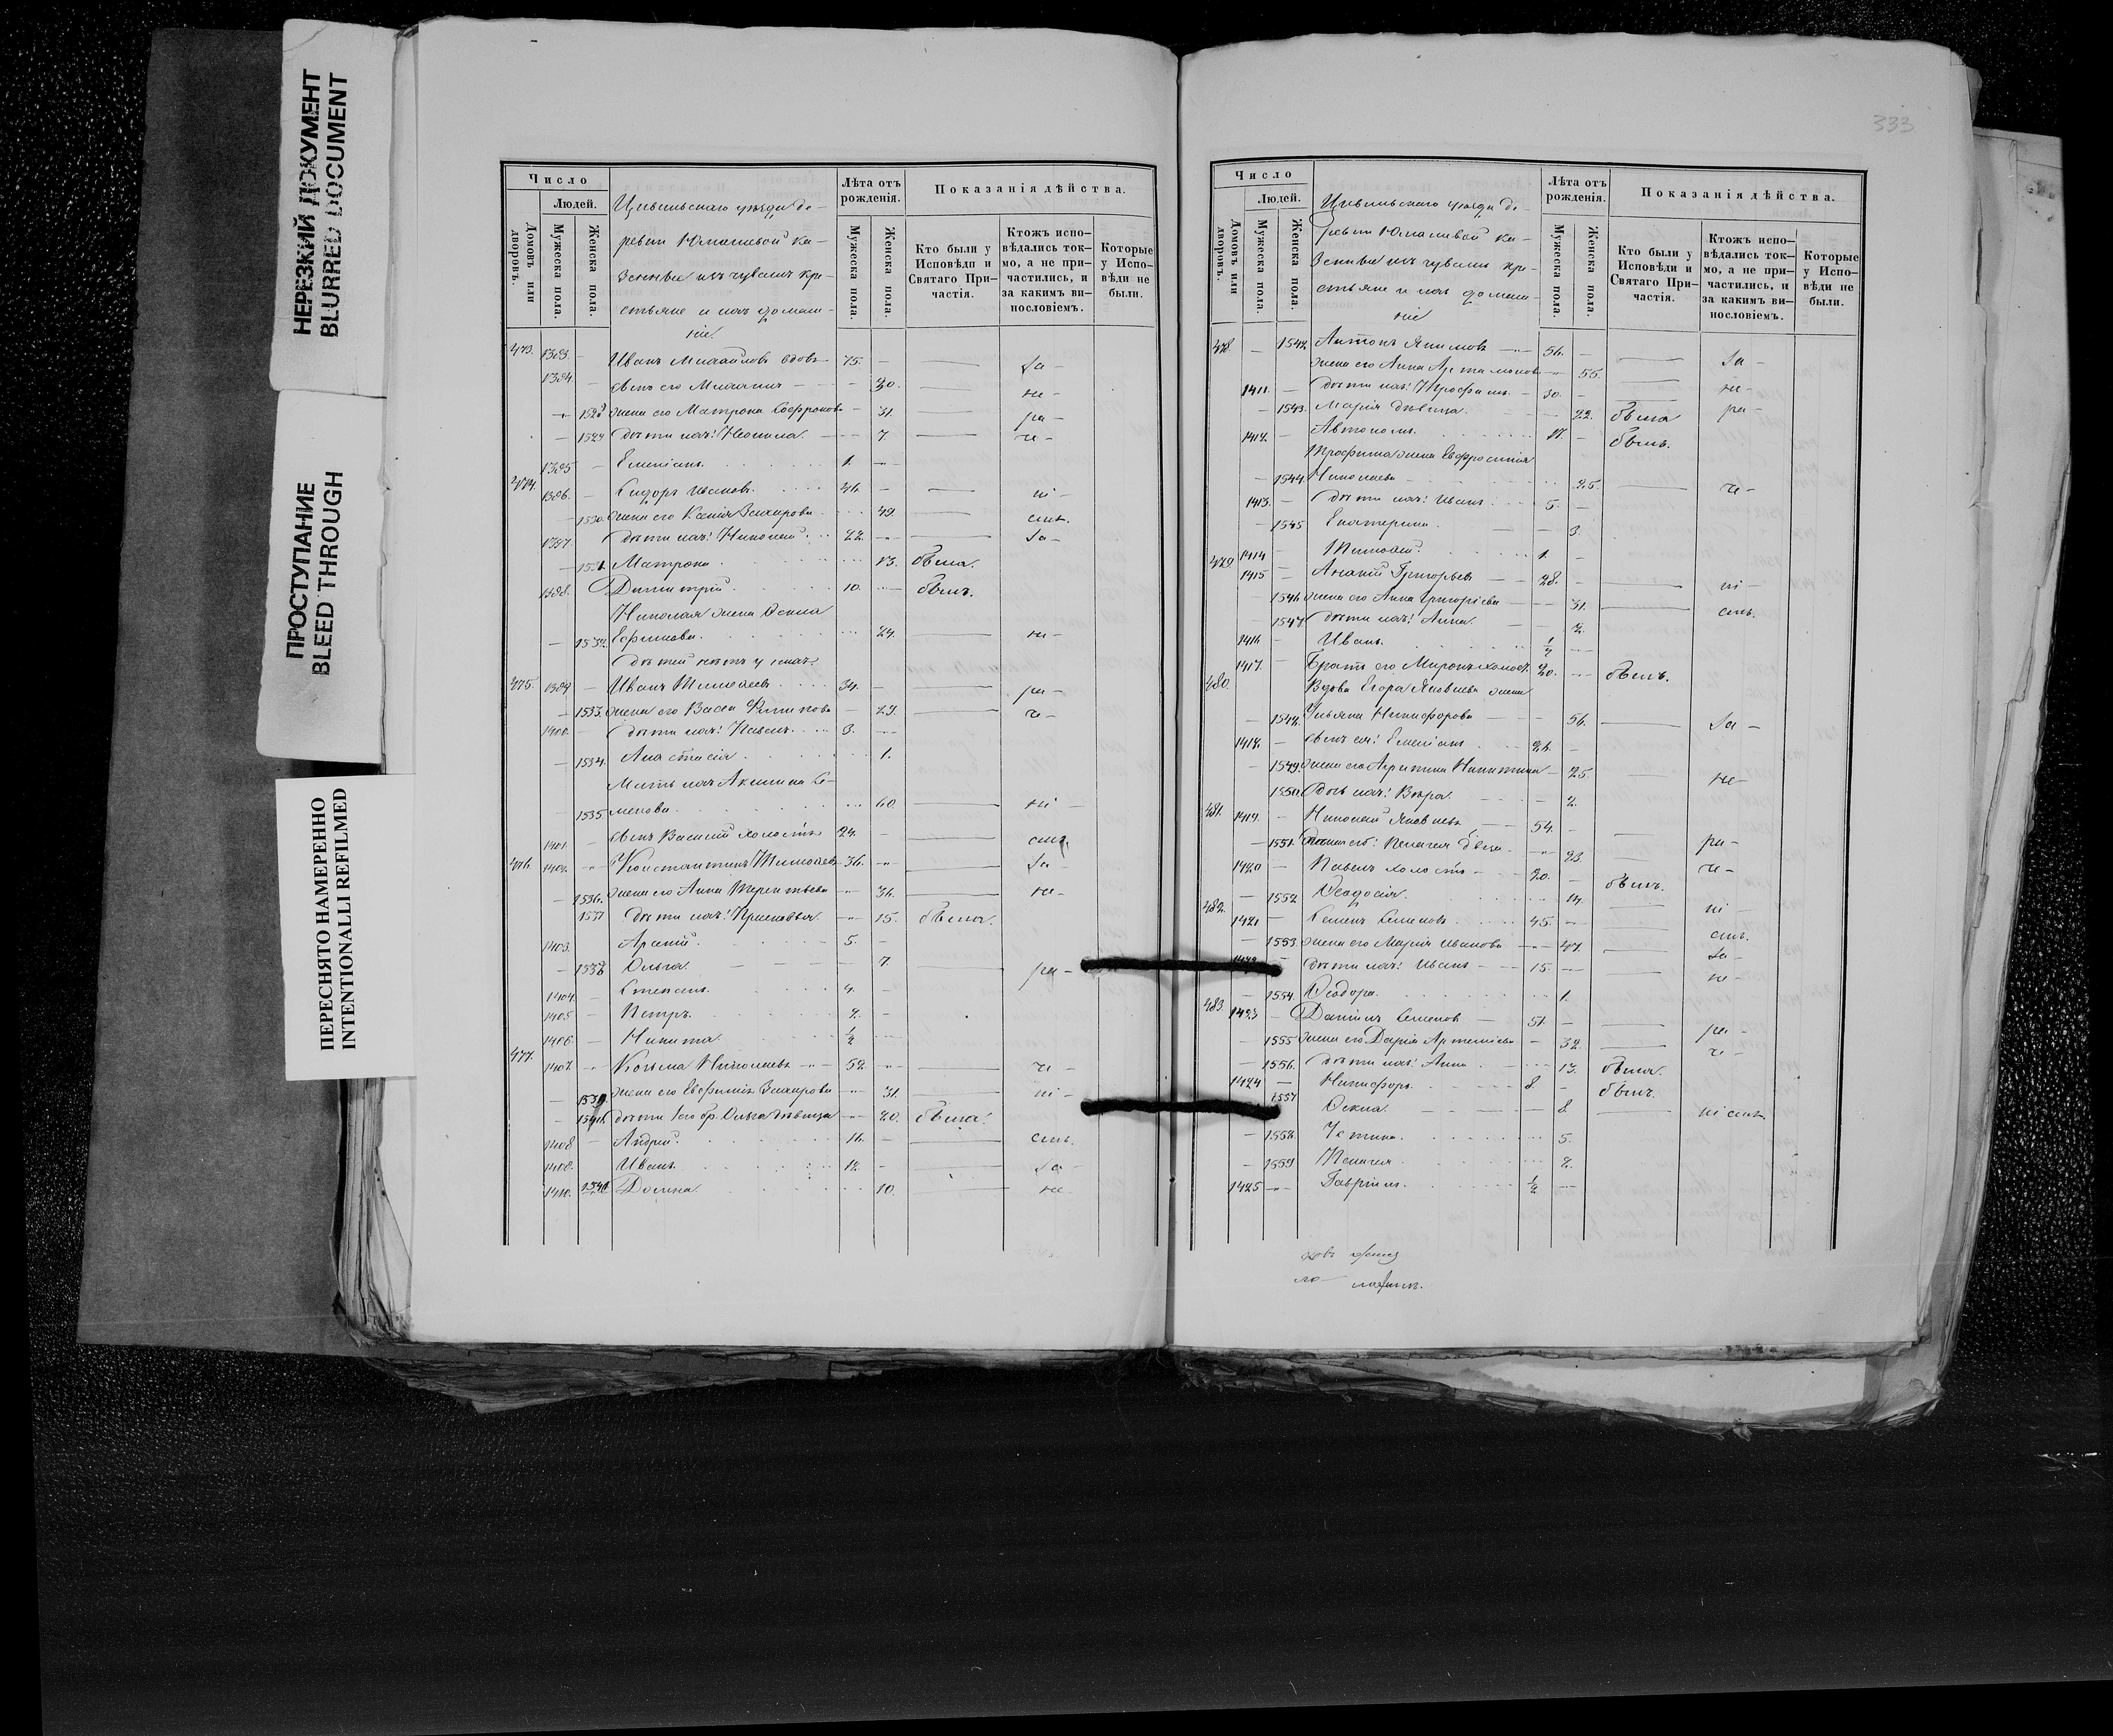 НЕРЕЗКИЙ ДОКУМЕНТ
BLURRED DOCUMENT
ПРОСТУПАНИЕ
BLEED THROUGH
ПЕРЕСНЯТО НАМЕРЕННО
INTENTIONALLI REFILMED
Число
Людей.
Домовъ или дворовъ.
Мужеска пола.
Женска пола.
Цивильскаго уѣзда де-
ревни Юманаевой ка-
зенные изъ чувашъ кре-
стьяне и ихъ домаш-
ніе
Лѣта отъ рожденія.
Мужеска пола.
Женска пола.
Показанія дѣйства.
Кто были у Исповѣди и Святаго При-частія.
Ктожъ испо-вѣдались ток-мо, а не при-частились, и за какимъ ви-нословіемъ.
Которые у Испо-вѣди не были.
473. 1383. Иванъ Михайловъ вдовъ 75. за-
1384. сынъ его 30. не-
1528 жена его Матрона Софронова 31. ра-
1529 дѣти ихъ: 7. че-
1385 Емеліанъ 1.
474. 1386. Сидоръ Ивановъ 46. ні-
1530. жена его Ксенія Захарова 49. емъ.
1387. дѣти ихъ: Николай 22. за-
1531. Матрона 13. была.
1388. Димитрій 10. былъ.
Николая жена Ѳекла
1532. Ефимова. 24. не-
дѣтей нѣтъ у нихъ.
475. 1389 Иванъ Тимоѳеевъ 34. ра-
1533. жена его Васса Филипова 29. че-
1400. дѣти ихъ: Павелъ 3.
1534. Анастасія 1.
Мать ихъ Акилина Се-
1535. менова. 60. ні-
1401. сынъ Василій холостъ 24. емъ
476. 1402. Константинъ Тимоѳеевъ 36. за-
1536. жена его Анна Терентьева 36. не-
1537 дѣти ихъ: Прасковья 15. была
1403. Арсеній 5.
1538 Ольга 7. ра-
1404. Степанъ 4.
1405 Петръ 2.
1406. Никита 1/2
477. 1407. Козьма Николаевъ 52. че-
1539. жена его Евфимія Захарова 31. ні-
1540. дѣти Ольга дѣвица 20. была.
1408 Андрей. 16. емъ.
1408. Иванъ 12. за-
1410. 1541 Домна 10. не
333
Число
Людей.
Домовъ или дворовъ.
Мужеска пола.
Женска пола.
Цивильскаго уѣзда де-
ревни Юманаевой ка-
зенные изъ чувашъ кре-
стьяне и ихъ домаш-
ніе
Лѣта отъ рожденія.
Мужеска пола.
Женска пола.
Показанія дѣйства.
Кто были у Исповѣди и Святаго При-частія.
Ктожъ испо-вѣдались ток-мо, а не при-частились, и за какимъ ви-нословіемъ.
Которые у Испо-вѣди не были.
478. 1542. Антонъ Якимовъ 56. за-
жена его Анна Артамонова 55. не-
1411. дѣти ихъ: Трофимъ 30. ра-
1543. Марія дѣвица. 22. была
1412. Автономъ 17. былъ.
Трофима жена Евфросинія
1544. Николаева 25. че-
1413. дѣти ихъ: Иванъ 5.
1545 Екатерина. 3.
1414 Тимоѳей. 1.
479 1415 Ананій Григорьевъ 28. ні-
1546. жена его Анна Григорьева 31. емъ.
1547 дѣти ихъ: Анна 2.
1416. Иванъ 1/2
1417. Братъ его Миронъ холост. 20. былъ.
480. Вдова Егора Яковлева жена
1548. Ульяна Никифорова 56. за-
1418. сынъ ея: Емеліанъ 26.
1549. жена его Агрипина Никитина 25. не-
1550. дочь ихъ: Вѣра 2.
481. 1419. Николай Яковлевъ 54.
1551. Пелагея 23. ра-
1420 Павелъ холостъ 20. былъ. че-
1552 Ѳеодосія. 14. ні-
482. 1421 Семенъ Семеновъ 45. емъ.
1553. жена его Марія Иванова 47. за-
1422 дѣти ихъ: Иванъ 15. не-
1554. Ѳеодора. 1.
483. 1423 Даніилъ Семеновъ 51. ра-
1555 жена его Дарія Артеміева 32. че-
1556. дѣти ихъ: Анна 13. была.
1424 Никифоръ. 8. былъ.
1557 Ѳекла 8 ніемъ
1558. Устина. 5.
1559 Пелагея 2.
1425 Гавріилъ. 1/2